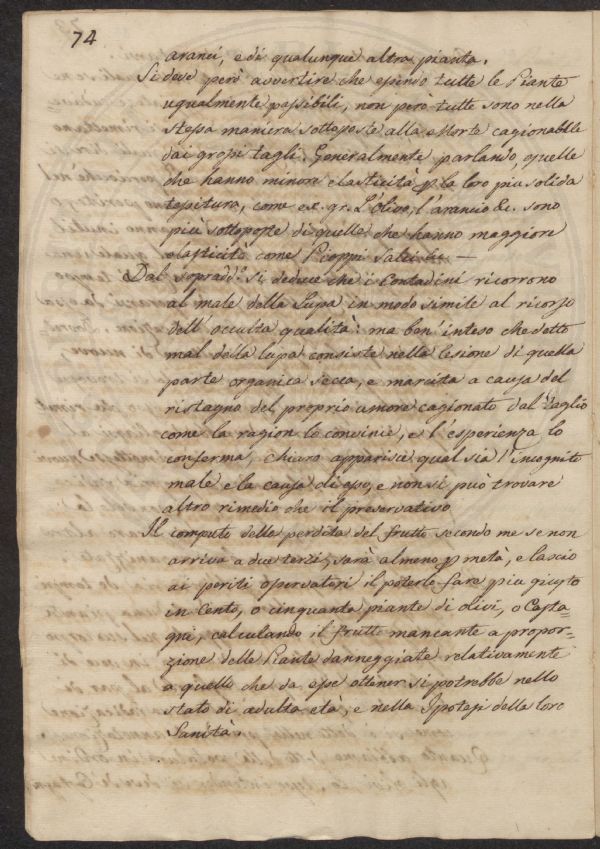 74
aranci, e di qualunque altra pianta.
Si deve però avvertire che essendo tutte le Piante
ugualmente passibili, non però tutte sono nella
stessa maniera sottoposte alla Morte cagionabile
dai grossi tagli. Generalmente parlando, quelle
che hanno minore elasticità p la loro più solida
tessitura, come ex. gr. L'Olivo, l'arancio &c. sono
più sottoposte di quelle che hanno maggiore
elasticità come Pioppi Salci &c —
Dal sopradd.º si deduce che i Contadini ricorrono
al male della Lupa in modo simile al ricorso
dell'occulta qualità: ma ben'inteso che detto
mal della lupa consiste nella lesione di quella
parte organica secca, e marcita a causa del
ristagno del proprio umore cagionato dal taglio
come la ragion lo convince, e l'esperienza lo
conferma, chiaro apparisce qual sia l'incognito
male e la causa di esso, e non si può trovare
altro rimedio che il preservativo
Il computo della perdita del frutto secondo me se non
arriva a due terzi, sarà almeno p metà, e lascio
ai periti osservatori il poterlo fare più giusto
in Cento, o cinquanta piante di olivi, o Casta-
gni, calculando il frutto mancante a propor-
zione delle Piante danneggiate relativamente
a quello che da esse ottener si potrebbe nello
stato di adulta età, e nella Ipotesi della loro
Sanità.